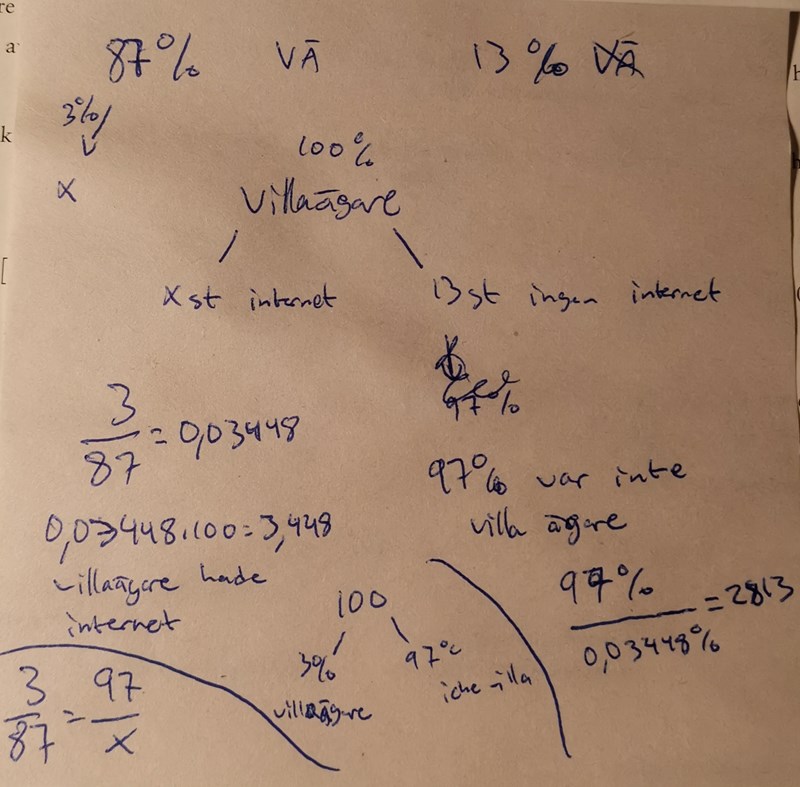 87% VĀ 13% VĀ
3%
x
100%
Villaägare
x st internet 13 st ingen internet
97%
3/87 = 0,03448
97% var inte
villa ägare
0,03448.100=3,448
villaägare hade
internet
97%/0,03448% = 2813
100
3% 97%
villaägare icke villa
3/87 = 97/x